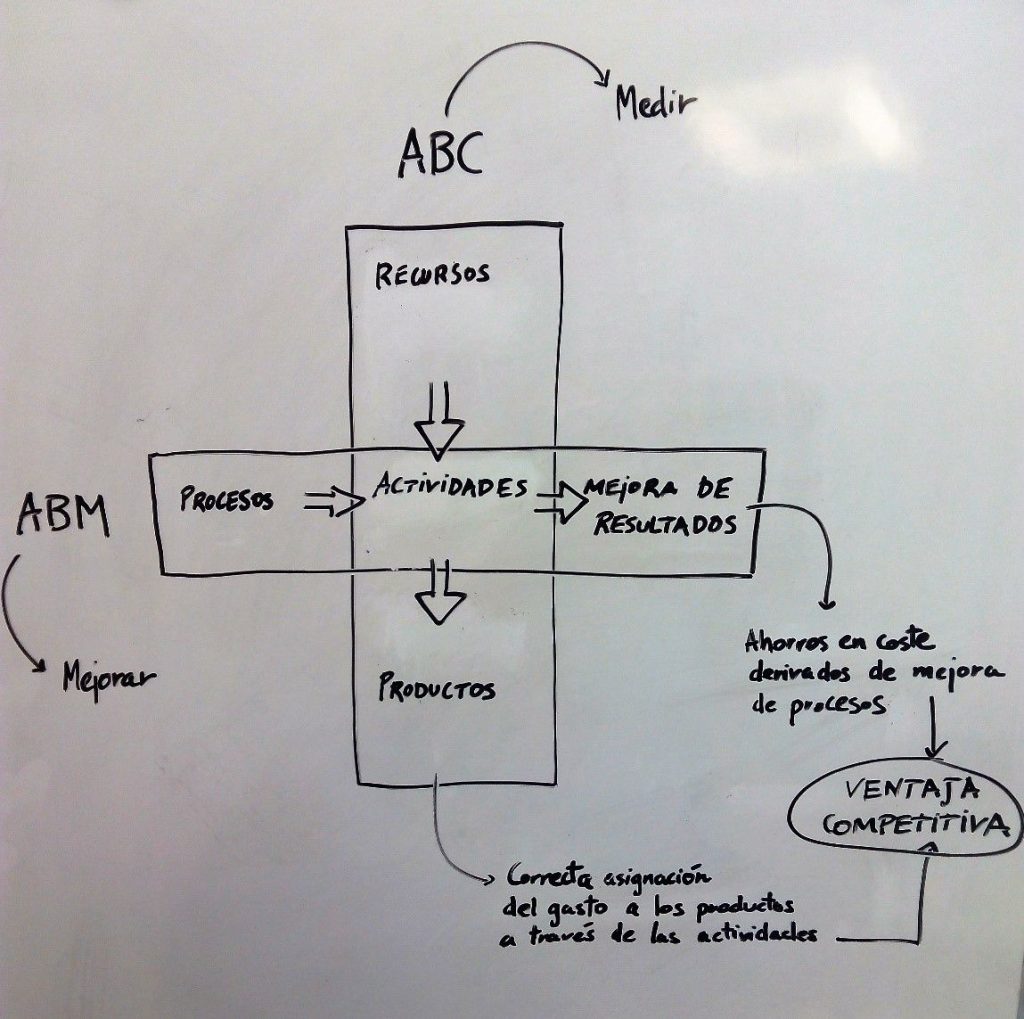 Medir
ABC
RECURSOS
ABM
PROCESOS
ACTIVIDADES
MEJORA DE
RESULTADOS
Mejorar
PRODUCTOS
Ahorros en coste
derivados de mejora
de procesos
VENTAJA
COMPETITIVA
Correcta asignación
del gasto a los productos
a través de las actividades